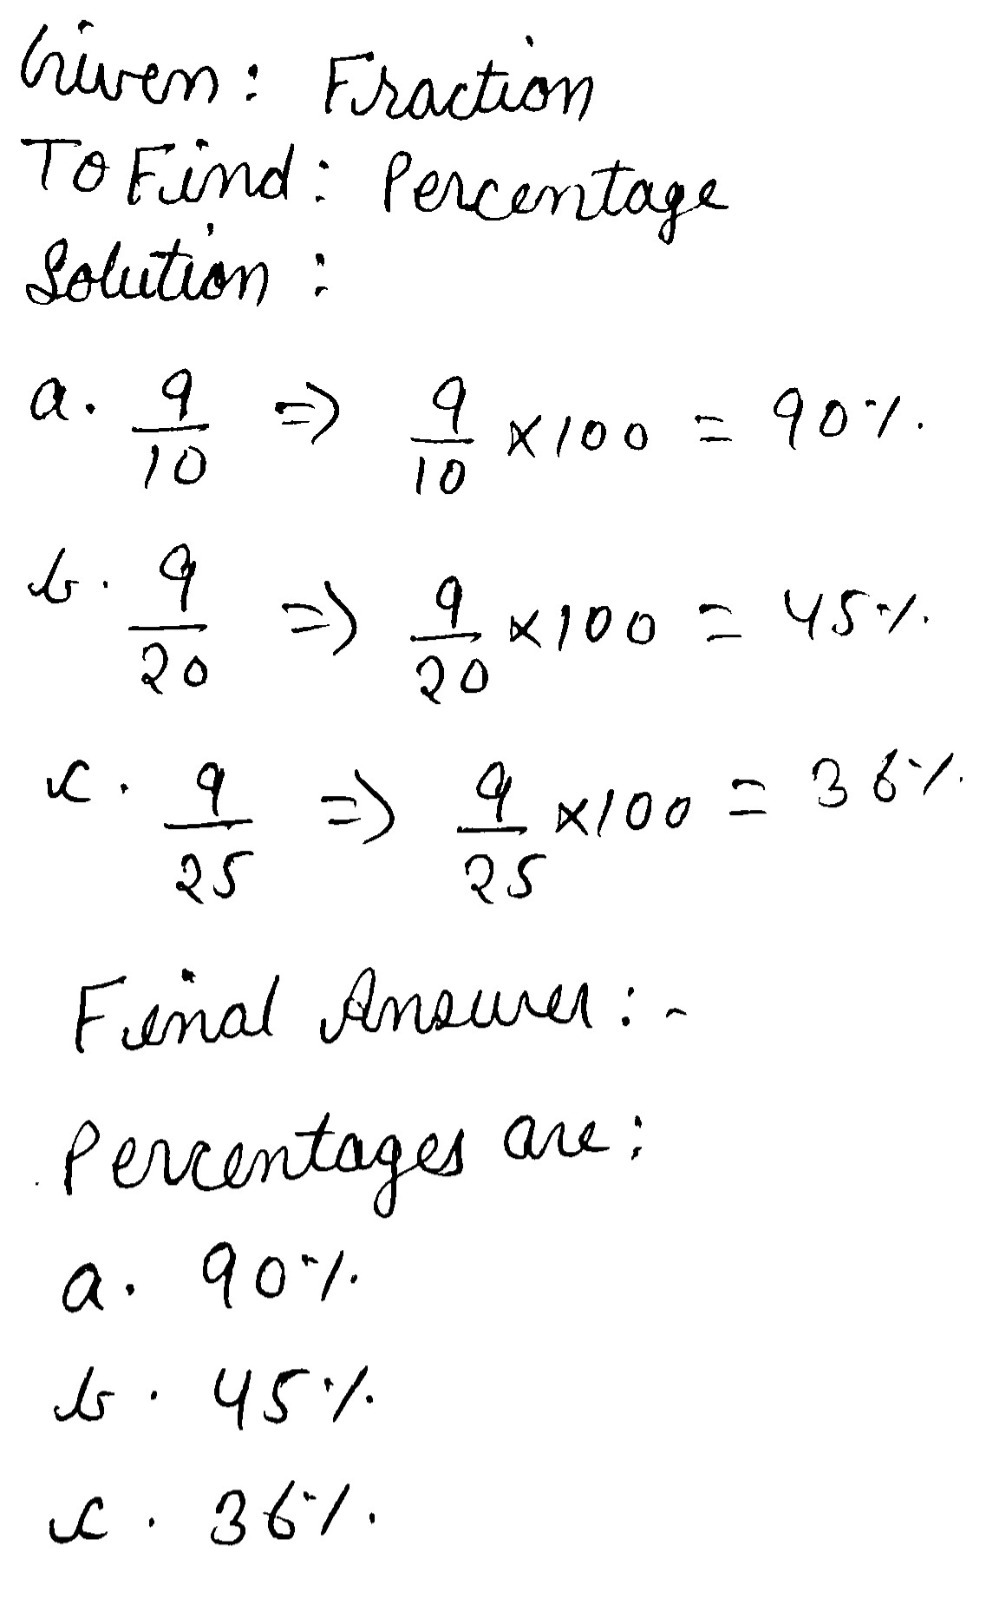 Given: Fraction
To Find: Percentage
Solution:
a. 9/10 => 9/10 × 100 = 90%
b. 9/20 => 9/20 × 100 = 45%
c. 9/25 => 9/25 × 100 = 36%
Final Answer:-
Percentages are:
a. 90%
b. 45%
c. 36%